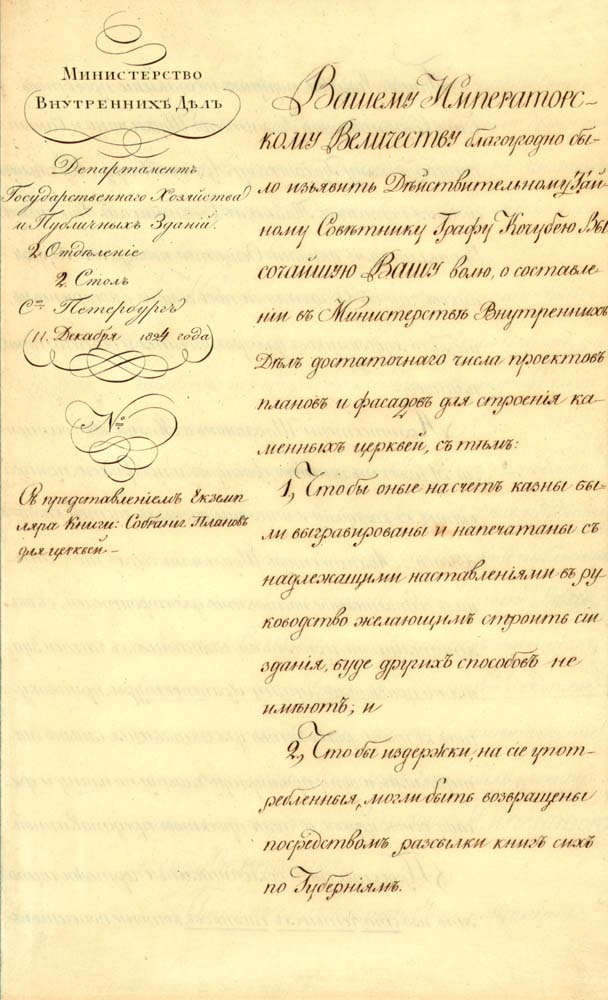 Министерство
Внутреннихъ Дѣлъ
Департаментъ
Государственнаго Хозяйства
и Публичныхъ Зданій.
2 Отдѣленіе
2 Столъ
С.т Петербургъ
11. Декабря 1824 года
№
Съ представленіемъ Екземп
ляра Книги: Собраніе Плановъ
для церквей.–
Вашему Императорс-
кому Величеству благоугодно бы-
ло изъявить Дѣйствительному Тай-
ному Совѣтнику Графу Кочубею Вы
сочайшую Вашу волю, о составле-
ніи въ Министерствѣ Внутреннихъ
Дѣлъ достаточнаго числа проектовъ
плановъ и фасадовъ для строенія ка-
менныхъ церквей, съ тѣмъ:
1, Чтобы оные на счетъ казны бы-
ли выгравированы и напечатаны съ
надлежащими наставленіями въ ру
ководство желающимъ строить сіи
зданія, буде другихъ способовъ не
имѣютъ; и
2, Чтобы издержки, на сіе упот-
ребленныя, могли быть возвращены
посредствомъ разсылки книгъ сихъ
по Губерніямъ.